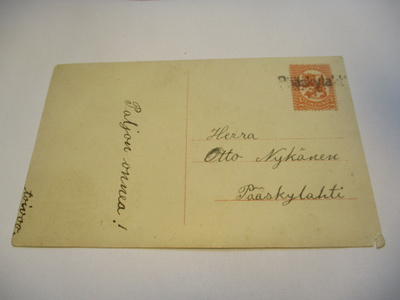 Paljon onnea!
toivoo.
Pääskylahti
Herra
Otto Nykänen
Pääskylahti